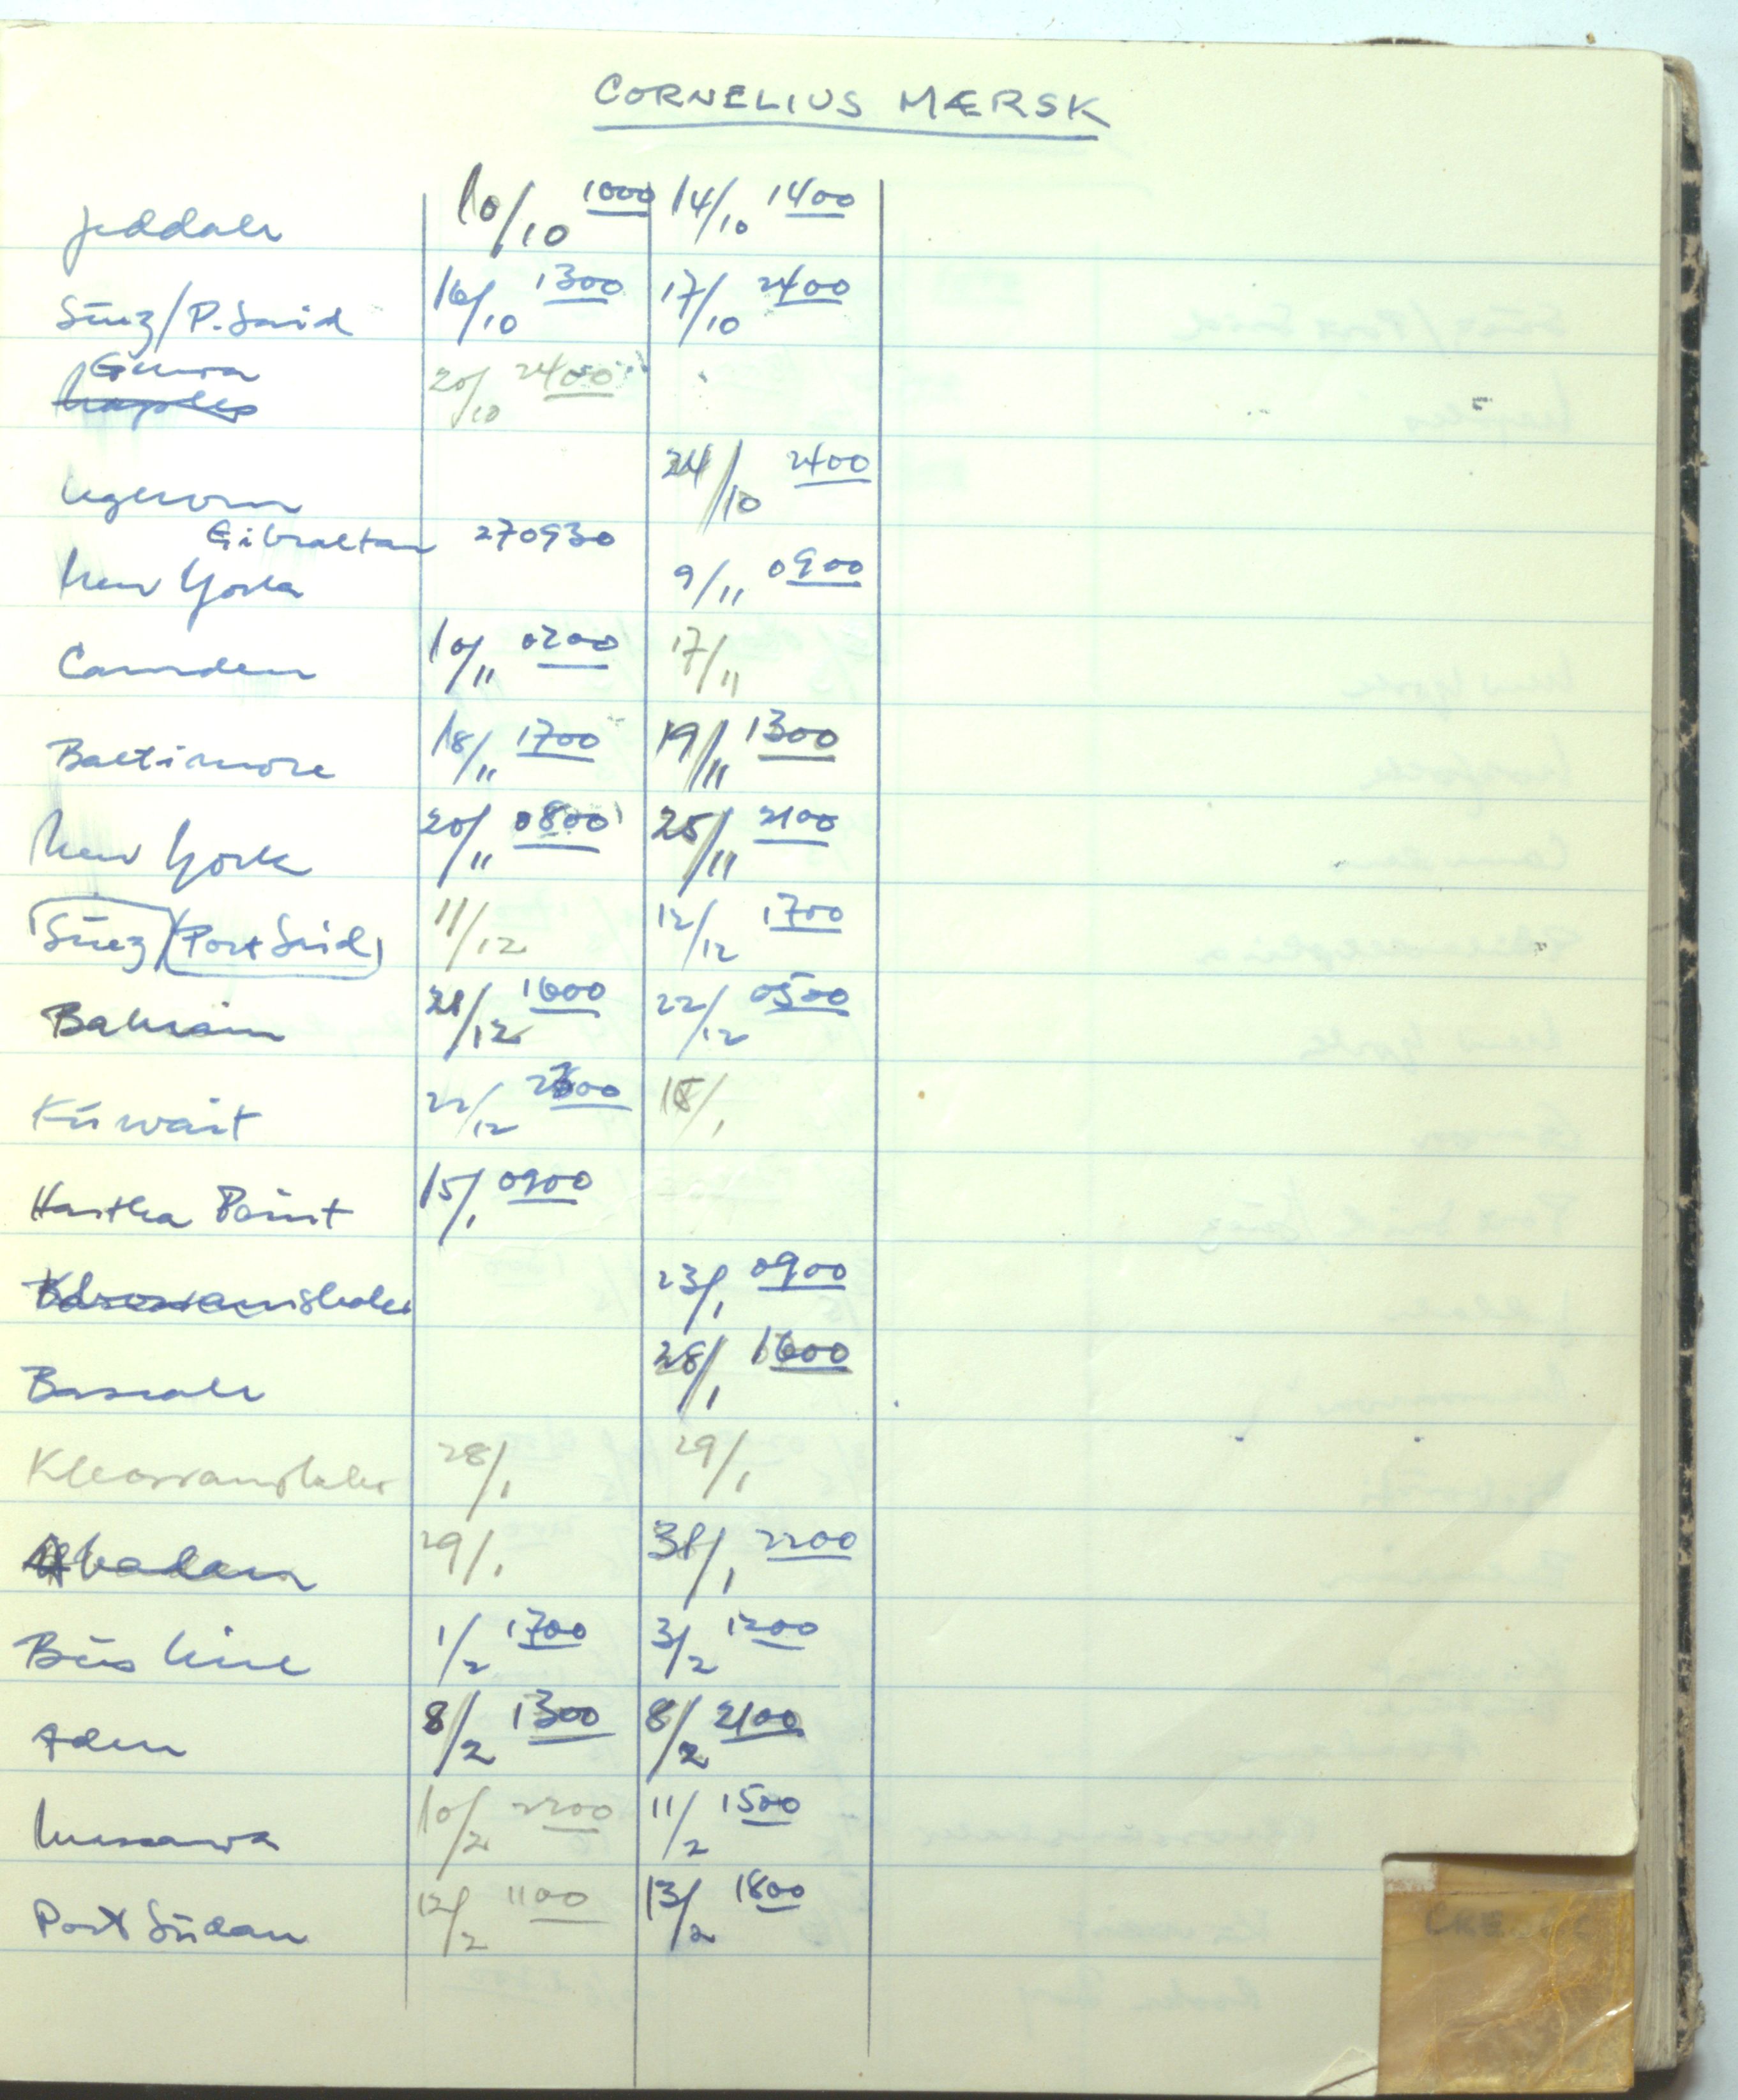 CORNELIUS MÆRSK
Jeddah 10/10 1000 14/10 1400
Süez/P.Said 16/10 1300 17/10 2400
Genoa 20/10 2400
Naples
Leghorn 24/10 2400
Gibraltar 270930
New York 9/11 0900
Camden 10/11 0200 17/11
Baltimore 18/11 1700 19/11 1300
New York 20/11 0800 25/11 2100
Süez/Port Said 11/12 12/12 1700
Bahrain 21/12 1600 22/12 0500
Küwait 22/12 2300 15/1
Hartha Point 15/1 0900
23/1 0900
Basrah 28/1 1600
Khorramshahr 28/1 29/1
Abadan 29/1 31/1 2200
Büshire 1/2 1700 3/2 1200
Aden 8/2 1300 8/2 2100
Massawa 10/2 2200 11/2 1500
Port Südan 12/2 1100 13/2 1800